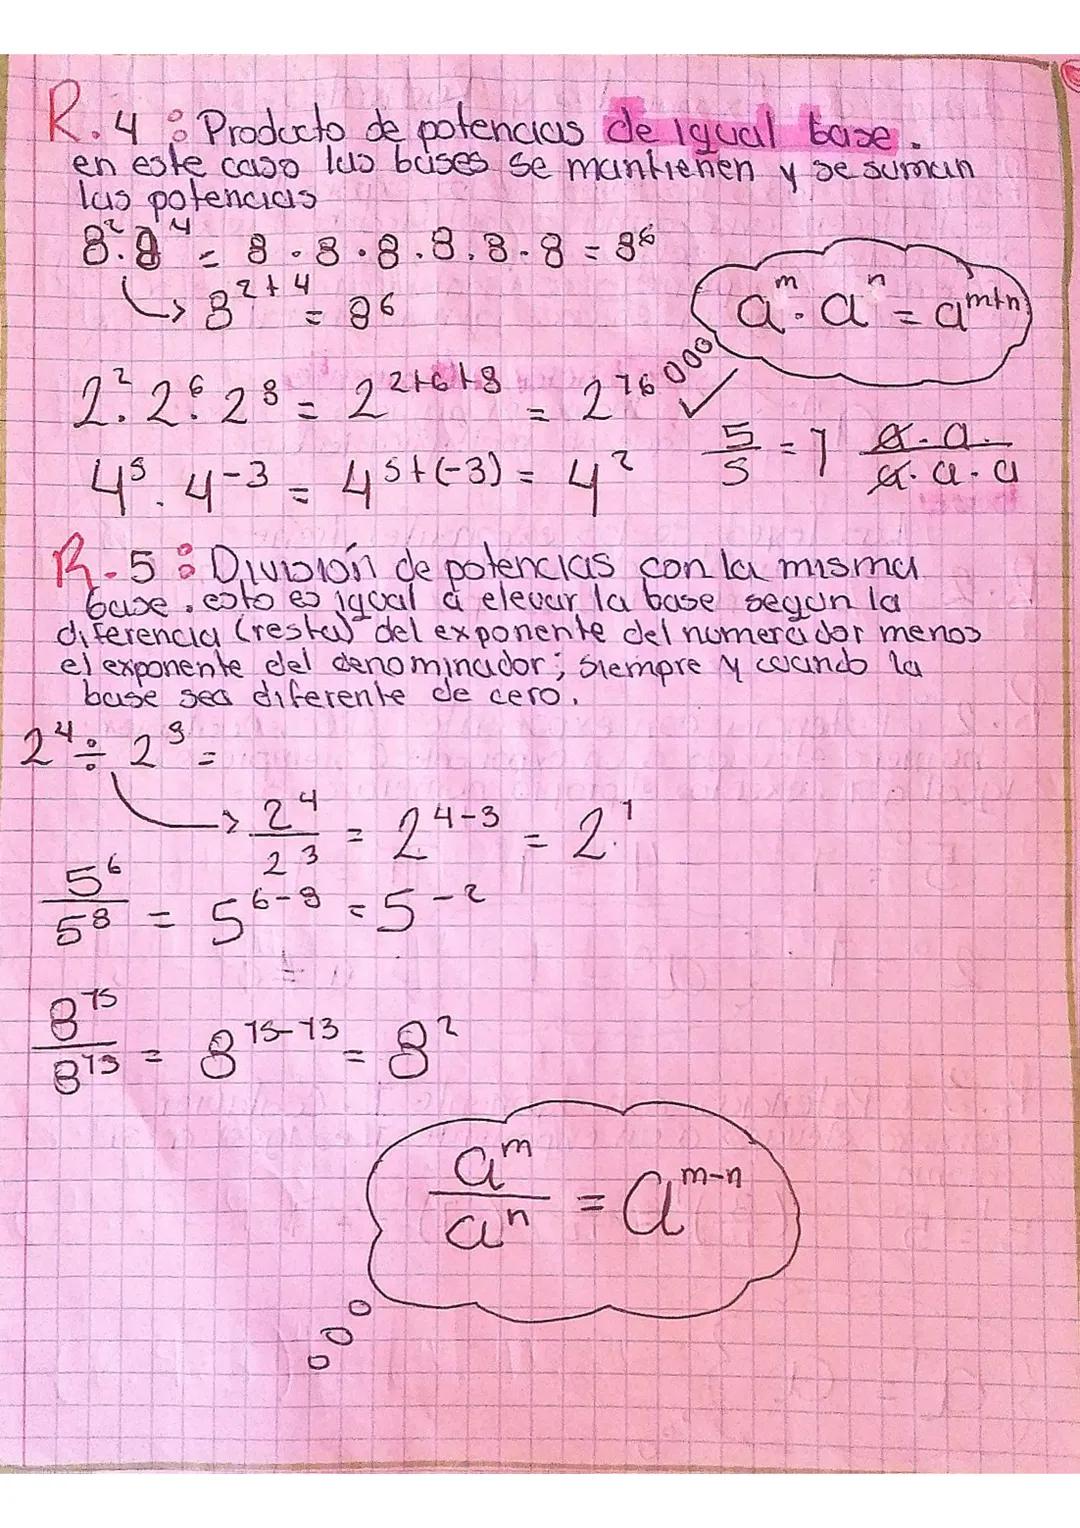 R.4 : Producto de potencias de igual base.
en este caso las bases se mantienen y se suman
las potencias
8² · 8⁴ = 8 · 8 · 8 · 8 · 8 · 8 = 8⁶
8²⁺⁴ = 8⁶
aᵐ · aⁿ = aᵐ⁺ⁿ
2² · 2⁶ · 2⁸ = 2²⁺⁶⁺⁸ = 2¹⁶
5/5 = 1 a · a · / a · a · a
4⁵ · 4⁻³ = 4⁵⁺⁽⁻³⁾ = 4²
R.5 : División de potencias con la misma
base. esto es igual a elevar la base según la
diferencia (resta) del exponente del numerador menos
el exponente del denominador; siempre y cuando la
base sea diferente de cero.
2⁴ ÷ 2³ =
2⁴/2³ = 2⁴⁻³ = 2¹
5⁶/5⁸ = 5⁶⁻⁸ = 5⁻²
8¹⁵/8¹³ = 8¹⁵⁻¹³ = 8²
aᵐ/aⁿ = aᵐ⁻ⁿ